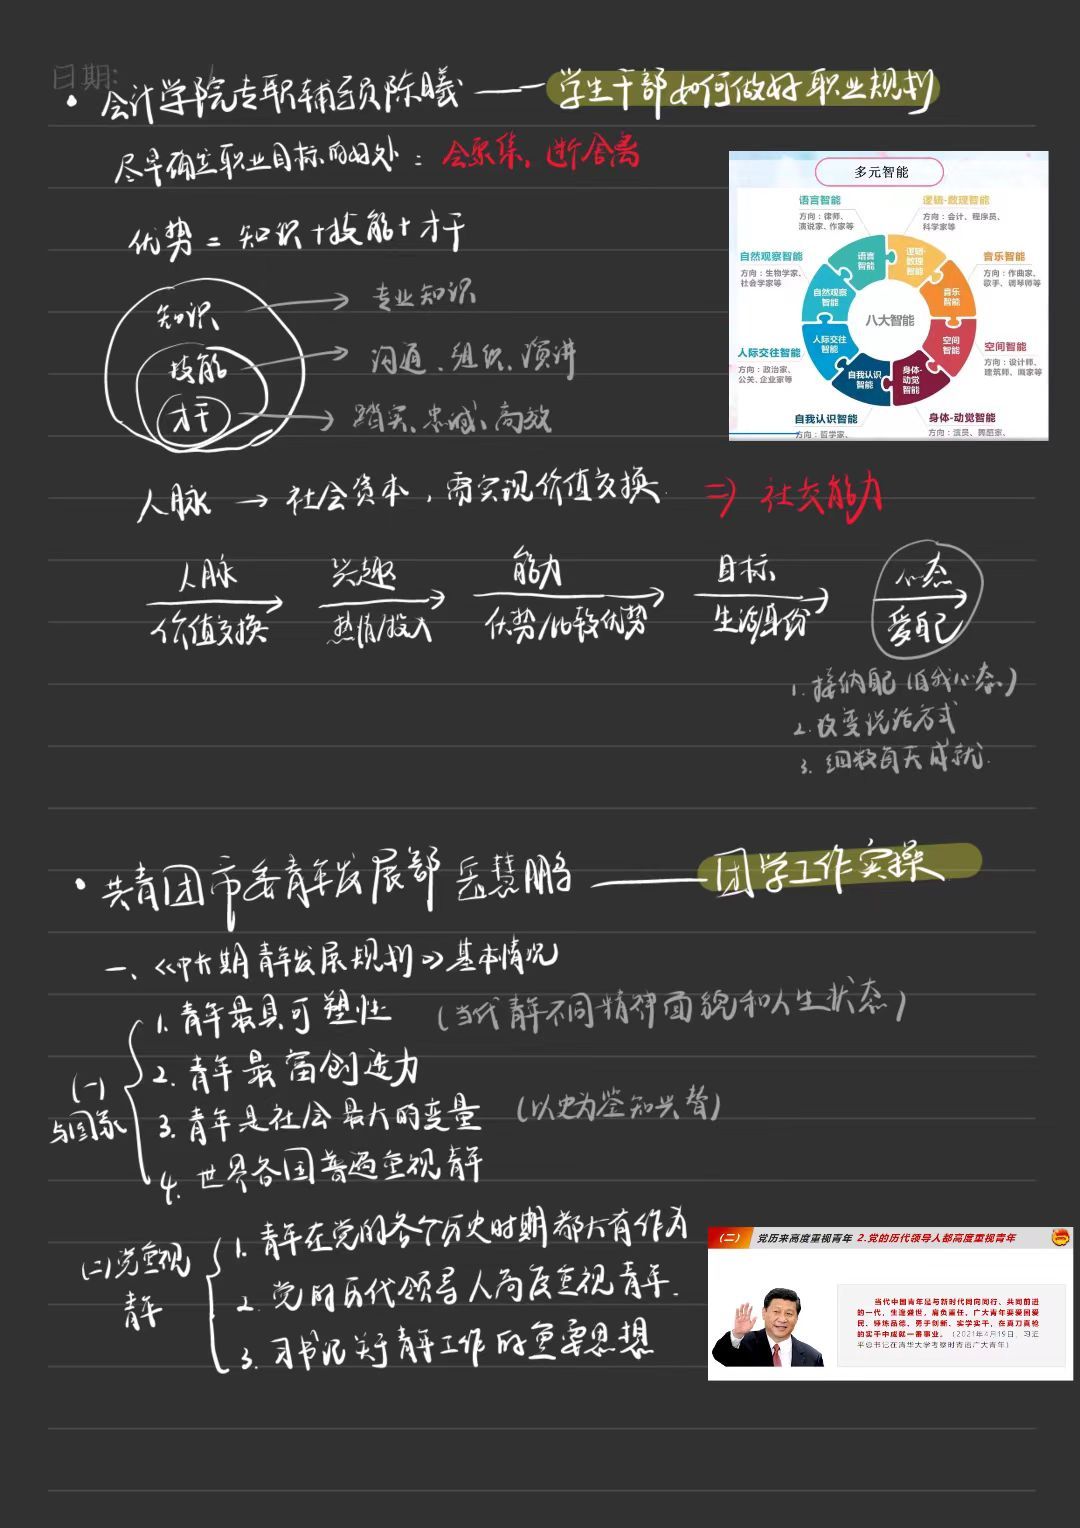 日期:
• 会计学院专职辅导员陈曦 —— 学生干部如何做好职业规划
尽早确定职业目标的好处：会聚集，断舍离
优势 = 知识+技能+才干
知识 → 专业知识
技能 → 沟通、组织、演讲
才干 → 踏实、忠诚、高效
多元智能
语言智能
方向：律师、
演说家、作家等
逻辑-数理智能
方向：会计、程序员、
科学家等
自然观察智能
方向：生物学家、
社会学家等
音乐智能
方向：作曲家、
歌手、调琴师等
人际交往智能
方向：政治家、
公关、企业家等
空间智能
方向：设计师、
建筑师、画家等
自我认识智能
方向：哲学家、
身体-动觉智能
方向：演员、舞蹈家、
八大智能
语言
智能
逻辑-
数理
智能
音乐
智能
空间
智能
身体-
动觉
智能
自我认识
智能
人际交往
智能
自然观察
智能
人脉 → 社会资本，需实现价值交换 => 社交能力
人脉 兴趣 能力 目标 心态
价值交换 热情/投入 优势/比较优势 生涯/身份 爱自己
1. 接纳自己（自我心态）
2. 改变说话方式
3. 细数每天成就.
• 共青团市委青年发展部 岳慧鹏 —— 团学工作实操
一、《中长期青年发展规划》基本情况
(一)与国家
1. 青年最具可塑性 (当代青年不同精神面貌和人生状态)
2. 青年最富创造力
3. 青年是社会最大的变量 (以史为鉴知兴替)
4. 世界各国普遍重视青年
(二)党重视青年
1. 青年在党的各个历史时期都大有作为
2. 党的历代领导人高度重视青年.
3. 习书记关于青年工作的重要思想
（二） 党历来高度重视青年 2.党的历代领导人都高度重视青年
当代中国青年是与新时代同向同行、共同前进
的一代，生逢盛世，肩负重任。广大青年要爱国爱
民、锤炼品德、勇于创新、实学实干，在真刀真枪
的实干中成就一番事业。（2021年4月19日，习近
平总书记在清华大学考察时寄语广大青年）